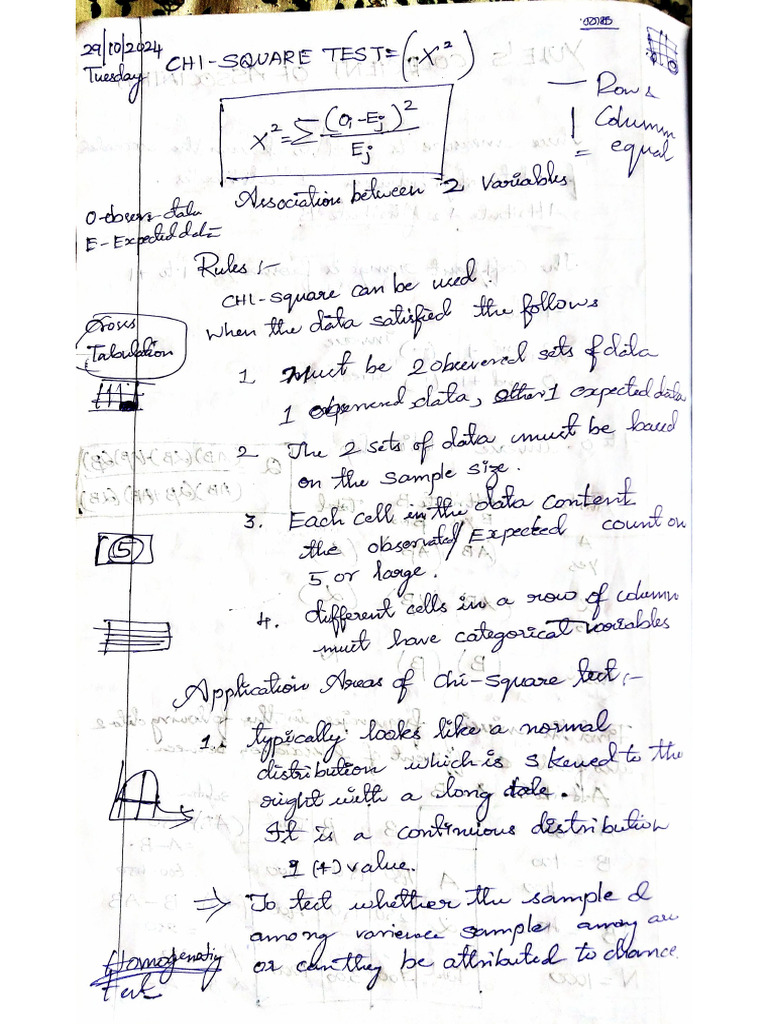 29/10/2024
Tuesday
CHI-SQUARE TEST = (X²)
X² = Σ (Oi - Ej)² / Ej
Rows
Column
equal
Association between 2 Variables
O-observ data
E-Expected data
Rules :-
CHI-square can be used
when the data satisfied the follows
Cross
Tabulation
1. Must be 2 observed sets of data
1 observed data, other 1 expected data
2. The 2 sets of data must be based
on the sample size.
3. Each cell in the data content
the observated/Expected count on
5 or large.
5
4. different cells in a row of column
must have categorical variables
Application Areas of chi-square test :-
1. typically looks like a normal
distribution which is skewed to the
right with a long tale.
It is a continuous distribution
1 (+) value.
⇒ To test whether the sample d
among varience sample among are
or can they be attributed to chance.
Homogenatiy
Test